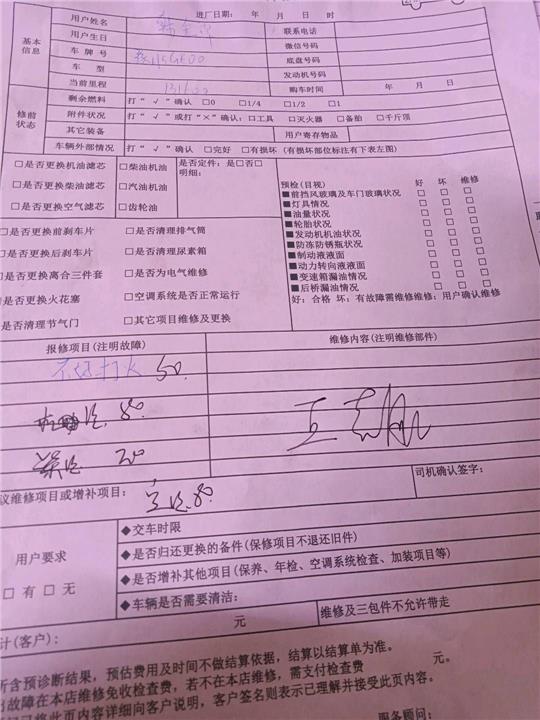 进厂日期： 年 月 日 时
基本信息
用户姓名
联系电话
用户生日
微信号码
车牌号
底盘号码
车型
发动机号码
当前里程
购车时间 年 月 日
修前状态
剩余燃料 打“√”确认 □0 □1/4 □1/2 □1
附件状况 打“√”或打“×”确认：□工具 □灭火器 □备胎 □千斤顶
其它装备 用户寄存物品
车辆外部情况 打“√”确认 □完好 □有损坏（有损坏部位标注有下表左图）
□是否更换机油滤芯 □柴油机油 是否定件：是□否□
明细：
□是否更换柴油滤芯 □汽油机油
□是否更换空气滤芯 □齿轮油
□是否更换前刹车片 □是否清理排气筒
□是否更换后刹车片 □是否清理尿素箱
□是否更换离合三件套 □是否为电气维修
是否更换火花塞 □空调系统是否正常运行
是否清理节气门 □其它项目维修及更换
预检(目视) 好 坏 维修
■前挡风玻璃及车门玻璃状况 □ □ □
■灯具情况 □ □ □
■油量状况 □ □ □
■轮胎状况 □ □ □
■发动机机油状况 □ □ □
■防冻防锈瓶状况 □ □ □
■制动液液面 □ □ □
■动力转向液液面 □ □ □
■变速箱漏油情况 □ □ □
■后桥漏油情况 □ □ □
好：合格 坏：有故障需维修维修：用户确认维修
报修项目(注明故障) 维修内容(注明维修部件)
打火 50.
80.
20
议维修项目或增补项目： 80 司机确认签字：
用户要求
□有□无
◆交车时限
◆是否归还更换的备件(保修项目不退还旧件)
◆是否增补其他项目(保养、年检、空调系统检查、加装项目等)
◆车辆是否需要清洁：
计(客户)： 元 维修及三包件不允许带走
所含预诊断结果，预估费用及时间不做结算依据，结算以结算单为准。
故障在本店维修免收检查费，若不在本店维修，需支付检查费 元。
将此页内容详细向客户说明，客户签名则表示已理解并接受此页内容。
服务顾问：